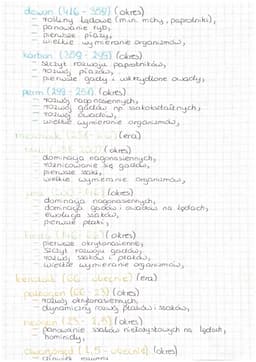 dewon (416 - 359) (okres)
— rośliny lądowe (m.in. mchy, paprotniki),
— panowanie ryb,
— pierwsze płazy,
— wielkie wymieranie organizmów,
karbon (359 - 299) (okres)
— szczyt rozwoju paprotników,
— rozwój płazów,
— pierwsze gady i uskrzydlone owady,
perm (299 - 251) (okres)
— rozwój nagonasiennych,
— rozwój gadów np. ssakokształtnych,
— rozwój owadów,
— wielkie wymieranie organizmów,
(era)
(okres)
— dominacja nagonasiennych,
— różnicowanie się gadów,
— pierwsze ssaki,
— wielkie wymieranie organizmów,
jura (200 - 146) (okres)
— dominacja nagonasiennych,
— dominacja gadów i owadów na lądach,
— ewolucja ssaków,
— pierwsze ptaki,
kreda (146 - 66) (okres)
— pierwsze okrytonasienne,
— szczyt rozwoju gadów,
— rozwój ssaków i ptaków,
— wielkie wymieranie organizmów,
kenozoik (66 - obecnie) (era)
paleogen (66 - 23) (okres)
— rozwój okrytonasiennych,
— dynamiczny rozwój ptaków i ssaków,
neogen (23 - (okres)
— panowanie ssaków niełożyskowych na lądach,
hominidy,
czwartorzęd ( - obecnie) (okres)